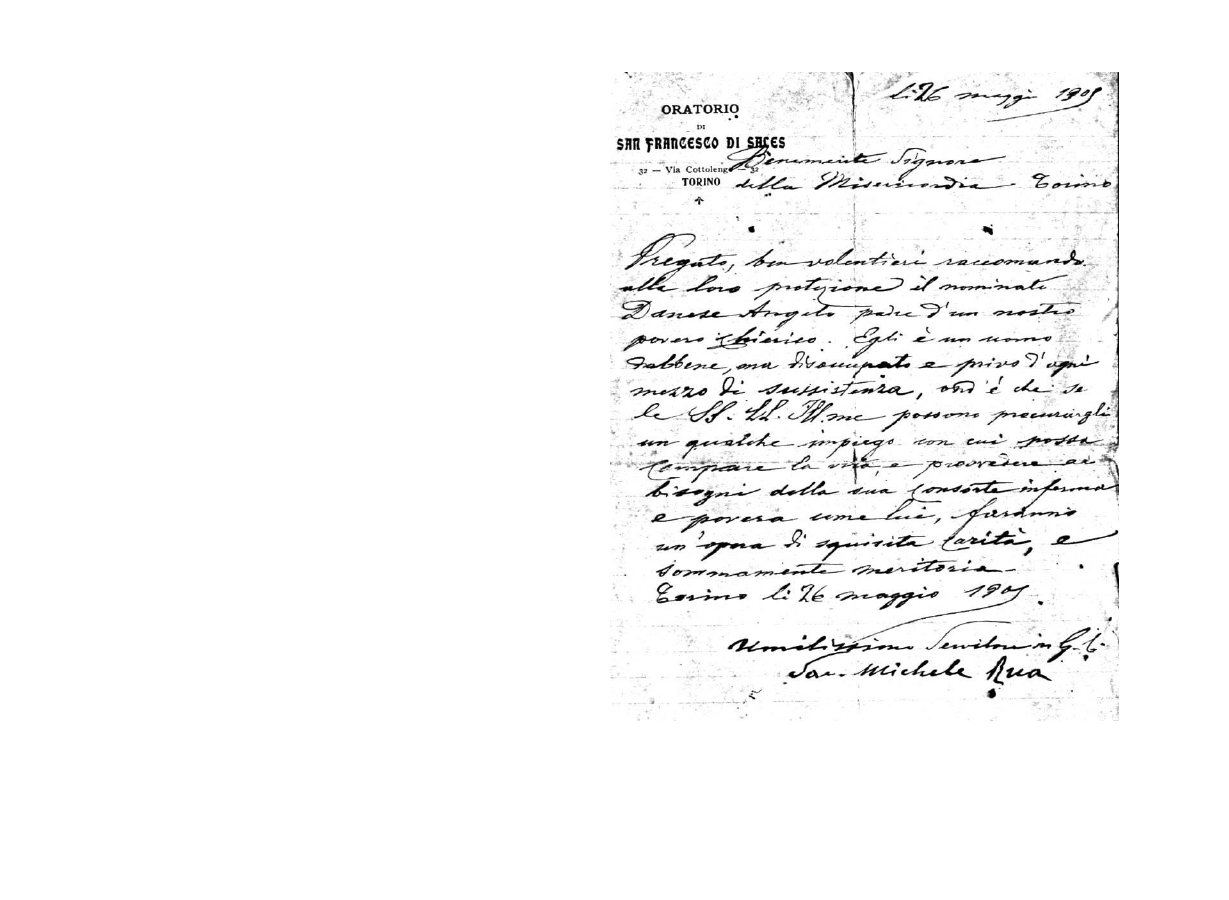 li 26 maggio 1905
ORATORIO
DI
SAN FRANCESCO DI SALES
32 — Via Cottolengo — 32
TORINO
Benemerite Signore
della Misericordia - Torino
Pregato, ben volentieri raccomando
alla loro protezione il nominato
Danese Angelo padre d'un nostro
povero chierico. Egli è un uomo
dabbene, ma disoccupato e privo d'ogni
mezzo di sussistenza, ond'è che se
le SS. LL. Ill.me possono procurargli
un qualche impiego con cui possa
campare la vita, e provvedere ai
bisogni della sua consorte inferma
e povera come lui, faranno
un'opera di squisita carità, e
sommamente meritoria
Torino li 26 maggio 1905
Umilissimo Servitore in G. C.
Sac. Michele Rua